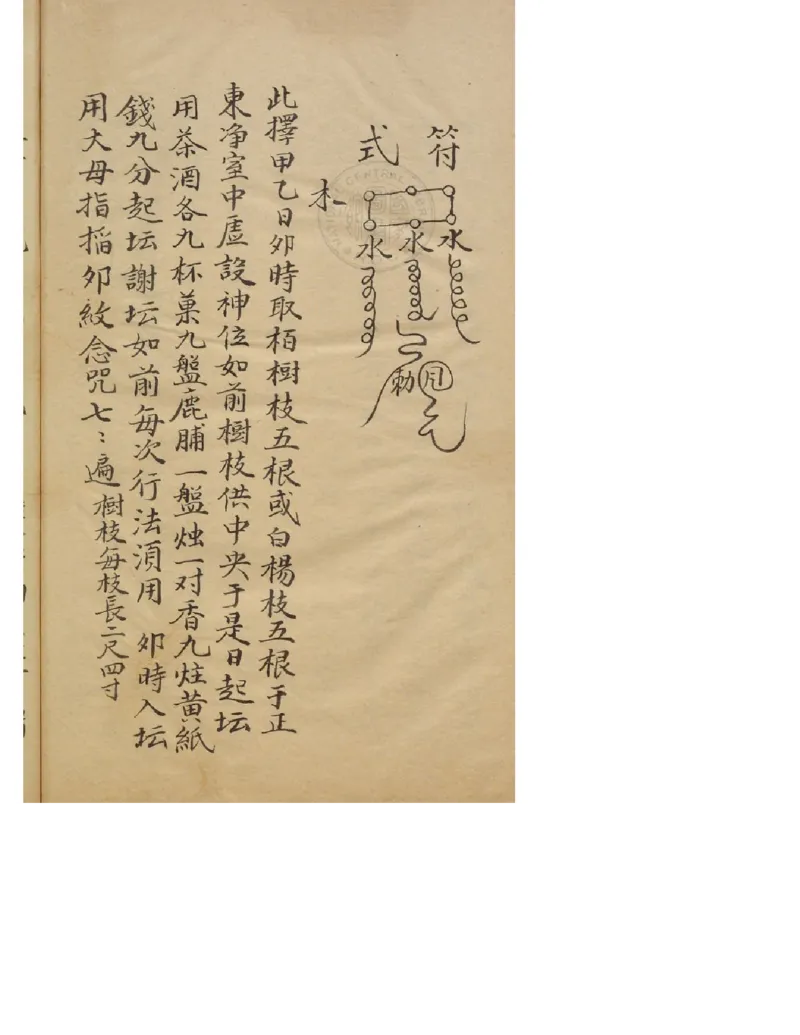 符式
水水水
勅
此擇甲乙日夘時取栢樹枝五根或白楊枝五根于正
東净室中虛設神位如前樹枝供中央于是日起坛
用茶酒各九杯菓九盤鹿脯一盤烛一对香九炷黄紙
錢九分起坛謝坛如前每次行法須用 夘時入坛
用大母指搯夘紋念咒七〻遍樹枝每枝長二尺四寸